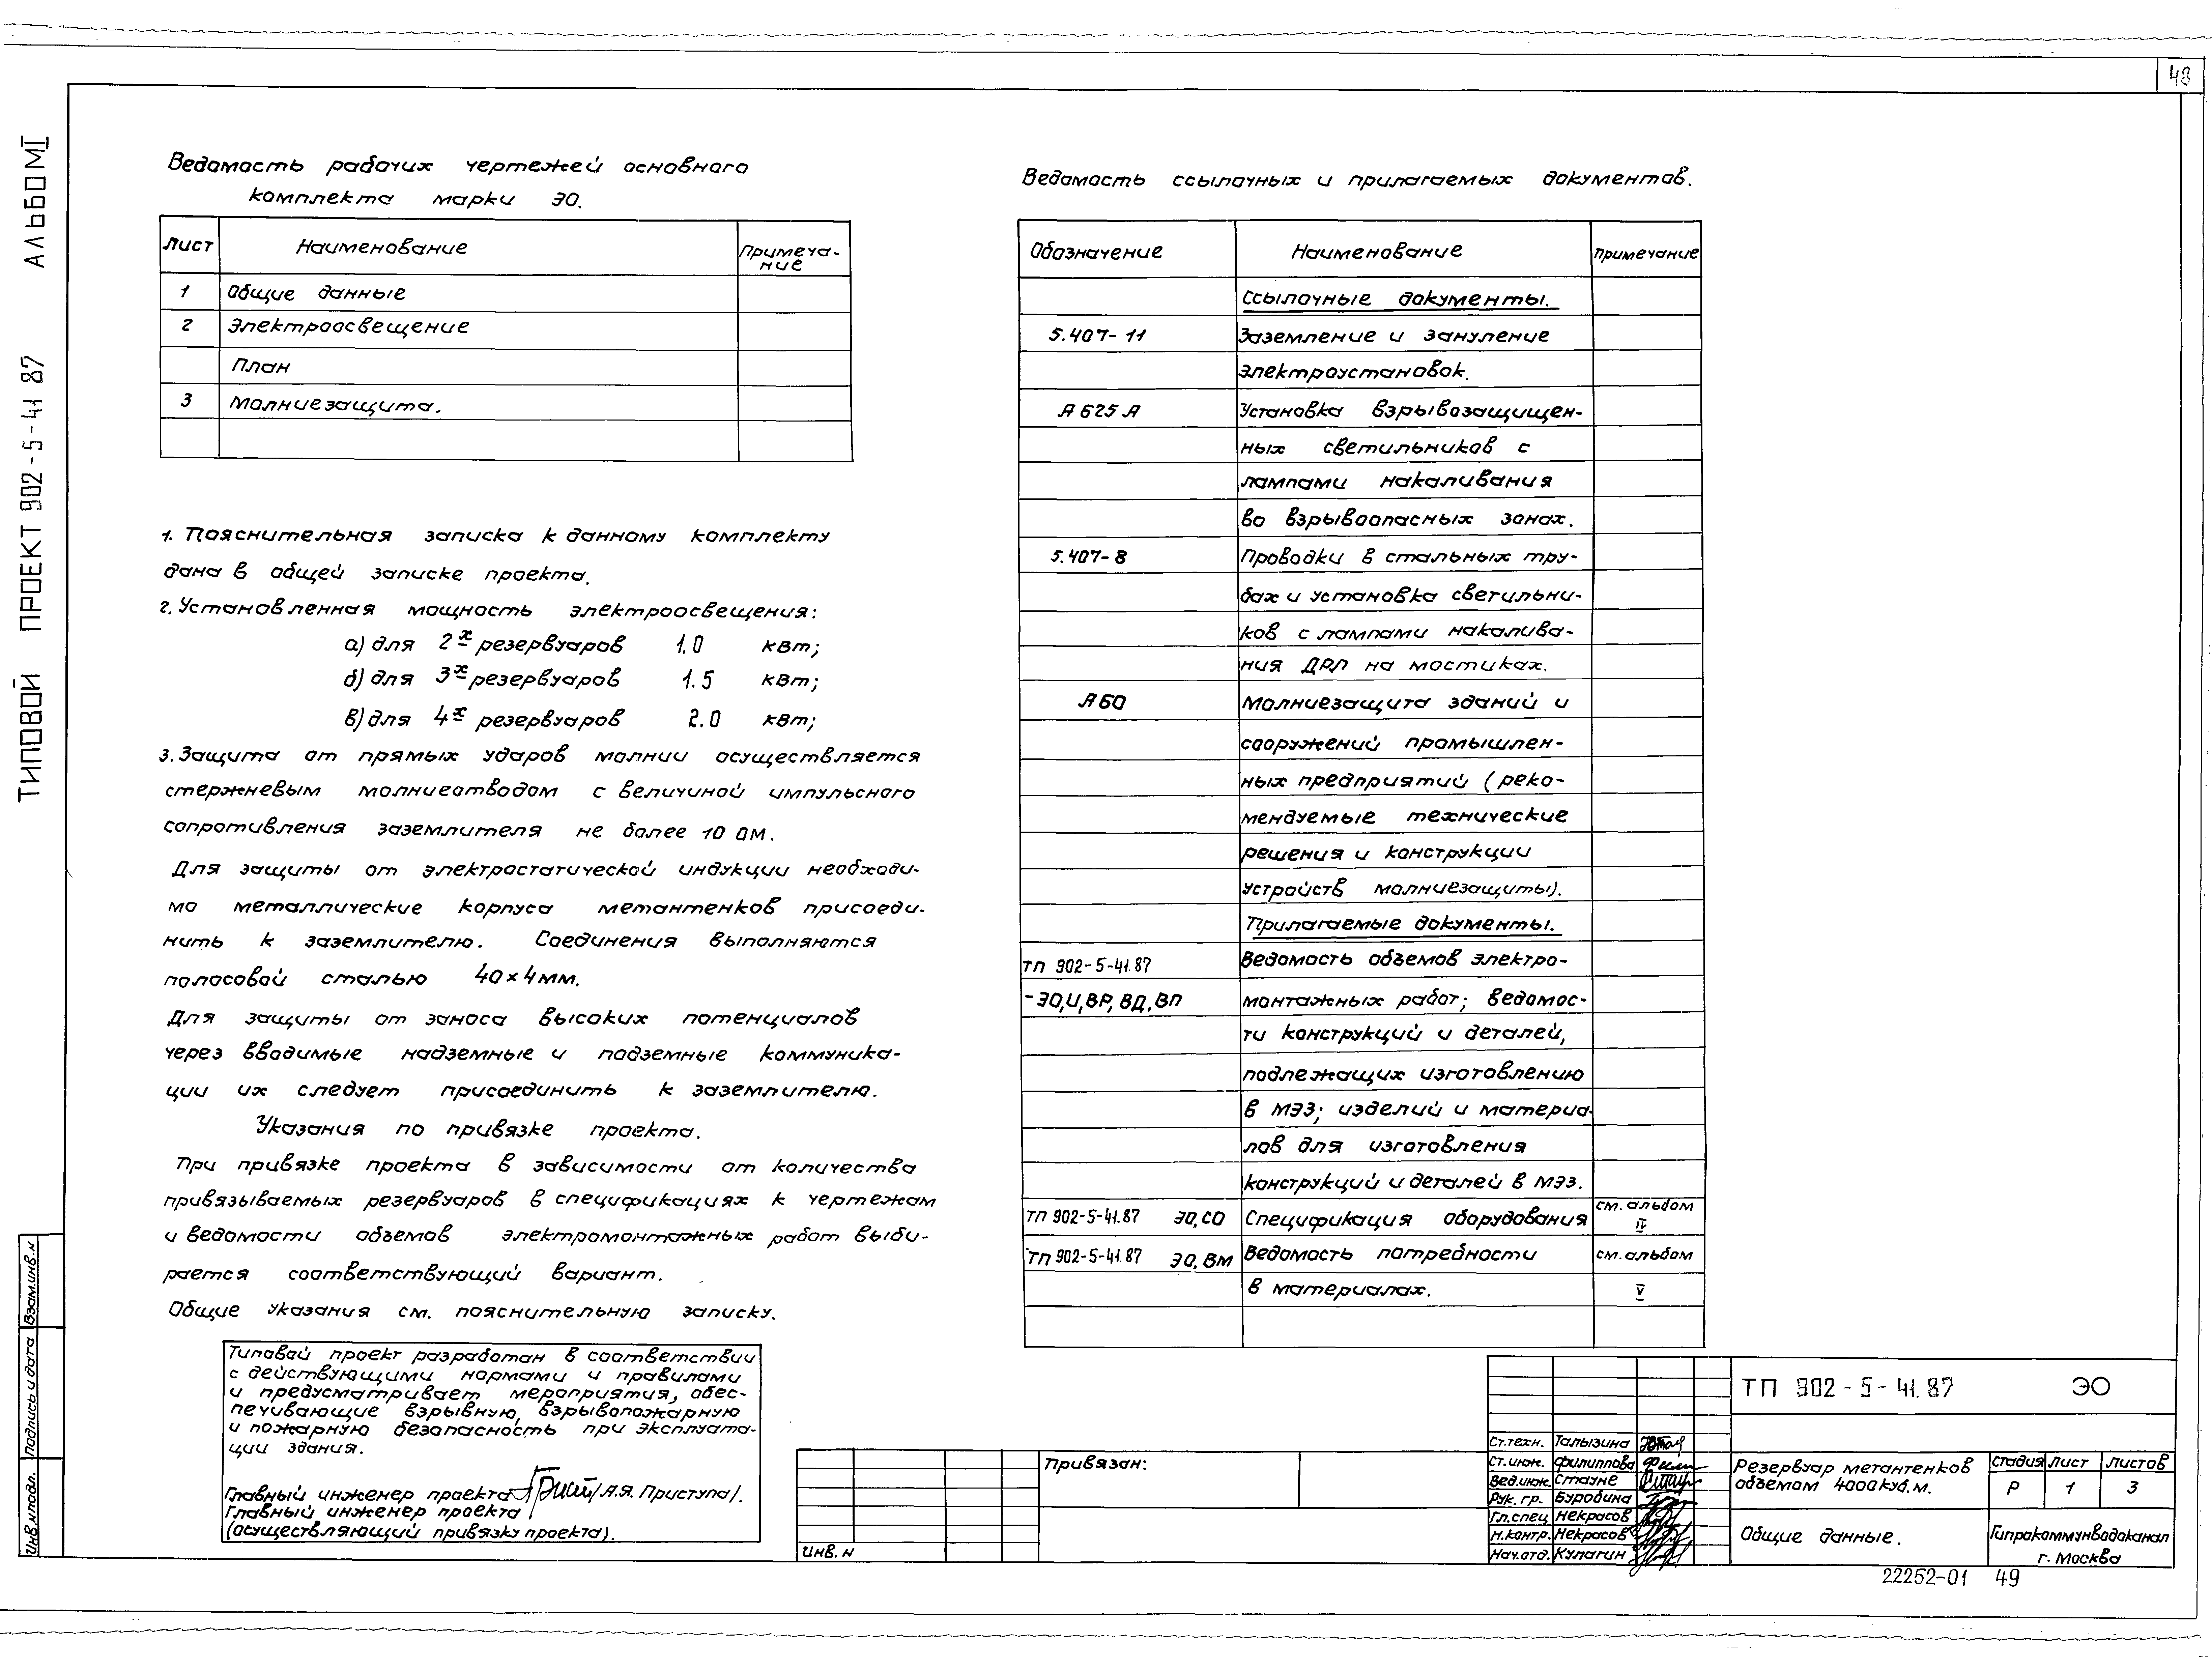 48
ТИПОВОЙ ПРОЕКТ 902-5-41 87 АЛЬБОМ I
Ведомость рабочих чертежей основного
комплекта марки ЭО.
Лист Наименование Примеча-
ние
1 Общие данные
2 Электроосвещение
План
3 Молниезащита.
1. Пояснительная записка к данному комплекту
дана в общей записке проекта.
2. Установленная мощность электроосвещения:
а) для 2х резервуаров 1.0 квт;
б) для 3х резервуаров 1.5 квт;
в) для 4х резервуаров 2.0 квт;
3. Защита от прямых ударов молнии осуществляется
стержневым молниеотводом с величиной импульсного
сопротивления заземлителя не более 10 ОМ.
Для защиты от электростатической индукции необходи-
мо металлические корпуса метантенков присоеди-
нить к заземлителю. Соединения выполняются
полосовой сталью 40×4мм.
Для защиты от заноса высоких потенциалов
через вводимые надземные и подземные коммуника-
ции их следует присоединить к заземлителю.
Указания по привязке проекта.
При привязке проекта в зависимости от количества
привязываемых резервуаров в спецификациях к чертежам
и ведомости объемов электромонтажных работ выби-
рается соответствующий вариант.
Общие указания см. пояснительную записку.
Типовой проект разработан в соответствии
с действующими нормами и правилами
и предусматривает мероприятия, обес-
печивающие взрывную, взрывопожарную
и пожарную безопасность при эксплуата-
ции здания.
Главный инженер проекта /А.Я. Приступа/.
Главный инженер проекта
(осуществляющий привязку проекта).
Ведомость ссылочных и прилагаемых документов.
Обозначение Наименование Примечание
Ссылочные документы.
5.407-11 Заземление и зануление
электроустановок.
А625А Установка взрывозащищен-
ных светильников с
лампами накаливания
во взрывоопасных зонах.
5.407-8 Проводки в стальных тру-
бах и установка светильни-
ков с лампами накалива-
ния ДРЛ на мостиках.
А60 Молниезащита зданий и
сооружений промышлен-
ных предприятий (реко-
мендуемые технические
решения и конструкции
устройств молниезащиты).
Прилагаемые документы.
ТП 902-5-41.87 Ведомость объемов электро-
-ЭО,И,ВР,ВД,ВП монтажных работ; ведомос-
ти конструкций и деталей,
подлежащих изготовлению
в МЭЗ; изделий и материа-
лов для изготовления
конструкций и деталей в МЭЗ.
ТП 902-5-41.87 ЭО,СО Спецификация оборудования см. альбом
IV
ТП 902-5-41.87 ЭО,ВМ Ведомость потребности см. альбом
в материалах. V
Взам.инв.N
Подпись и дата
Инв.Nподл.
Инв. N
Привязан:
Ст.техн. Талызина
Ст.инж. Филиппова
Вед.инж. Стауне
Рук. гр. Буробина
Гл.спец Некрасов
Н.контр. Некрасов
Нач.отд. Кулагин
ТП 902-5-41.87 ЭО
Резервуар метантенков
объемом 4000куб.м.
Стадия Лист Листов
Р 1 3
Общие данные.
Гипрокоммунводоканал
г. Москва
22252-01 49